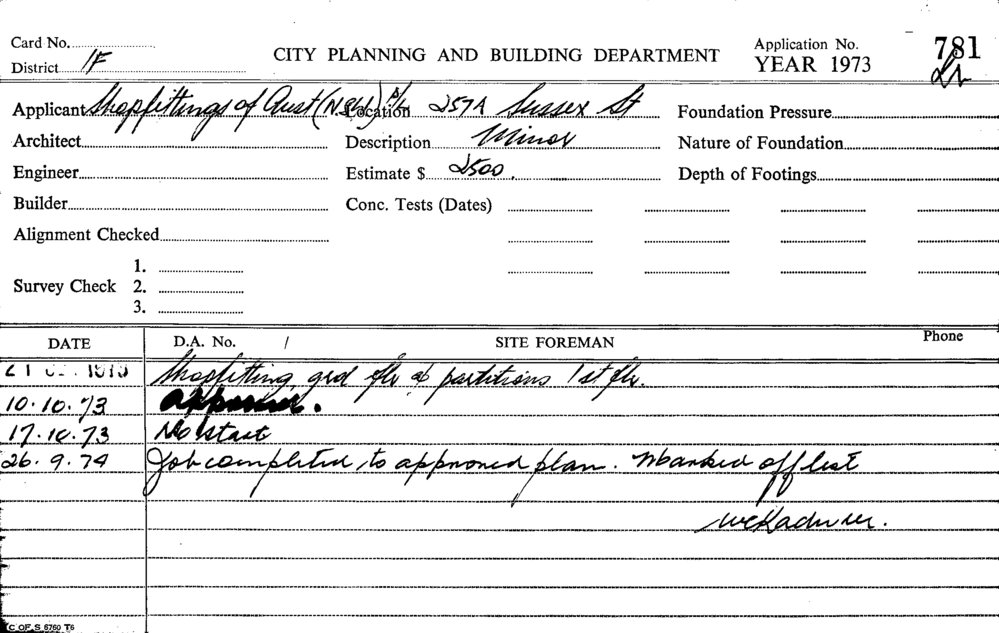 Card No.
District 1F
CITY PLANNING AND BUILDING DEPARTMENT
Application No. 781
YEAR 1973
Applicant Shopfittings of Aust (N.S.W.) P/L Location 257A Sussex St Foundation Pressure
Architect Description Minor Nature of Foundation
Engineer Estimate $ 2500. Depth of Footings
Builder Conc. Tests (Dates)
Alignment Checked
Survey Check 1.
2.
3.
DATE D.A. No. / SITE FOREMAN Phone
Shopfitting grd flr & partitions 1st flr.
10.10.73
17.10.73 No start
26.9.74 Job completed to approved plan. Marked off list
C OF S 6760 T6